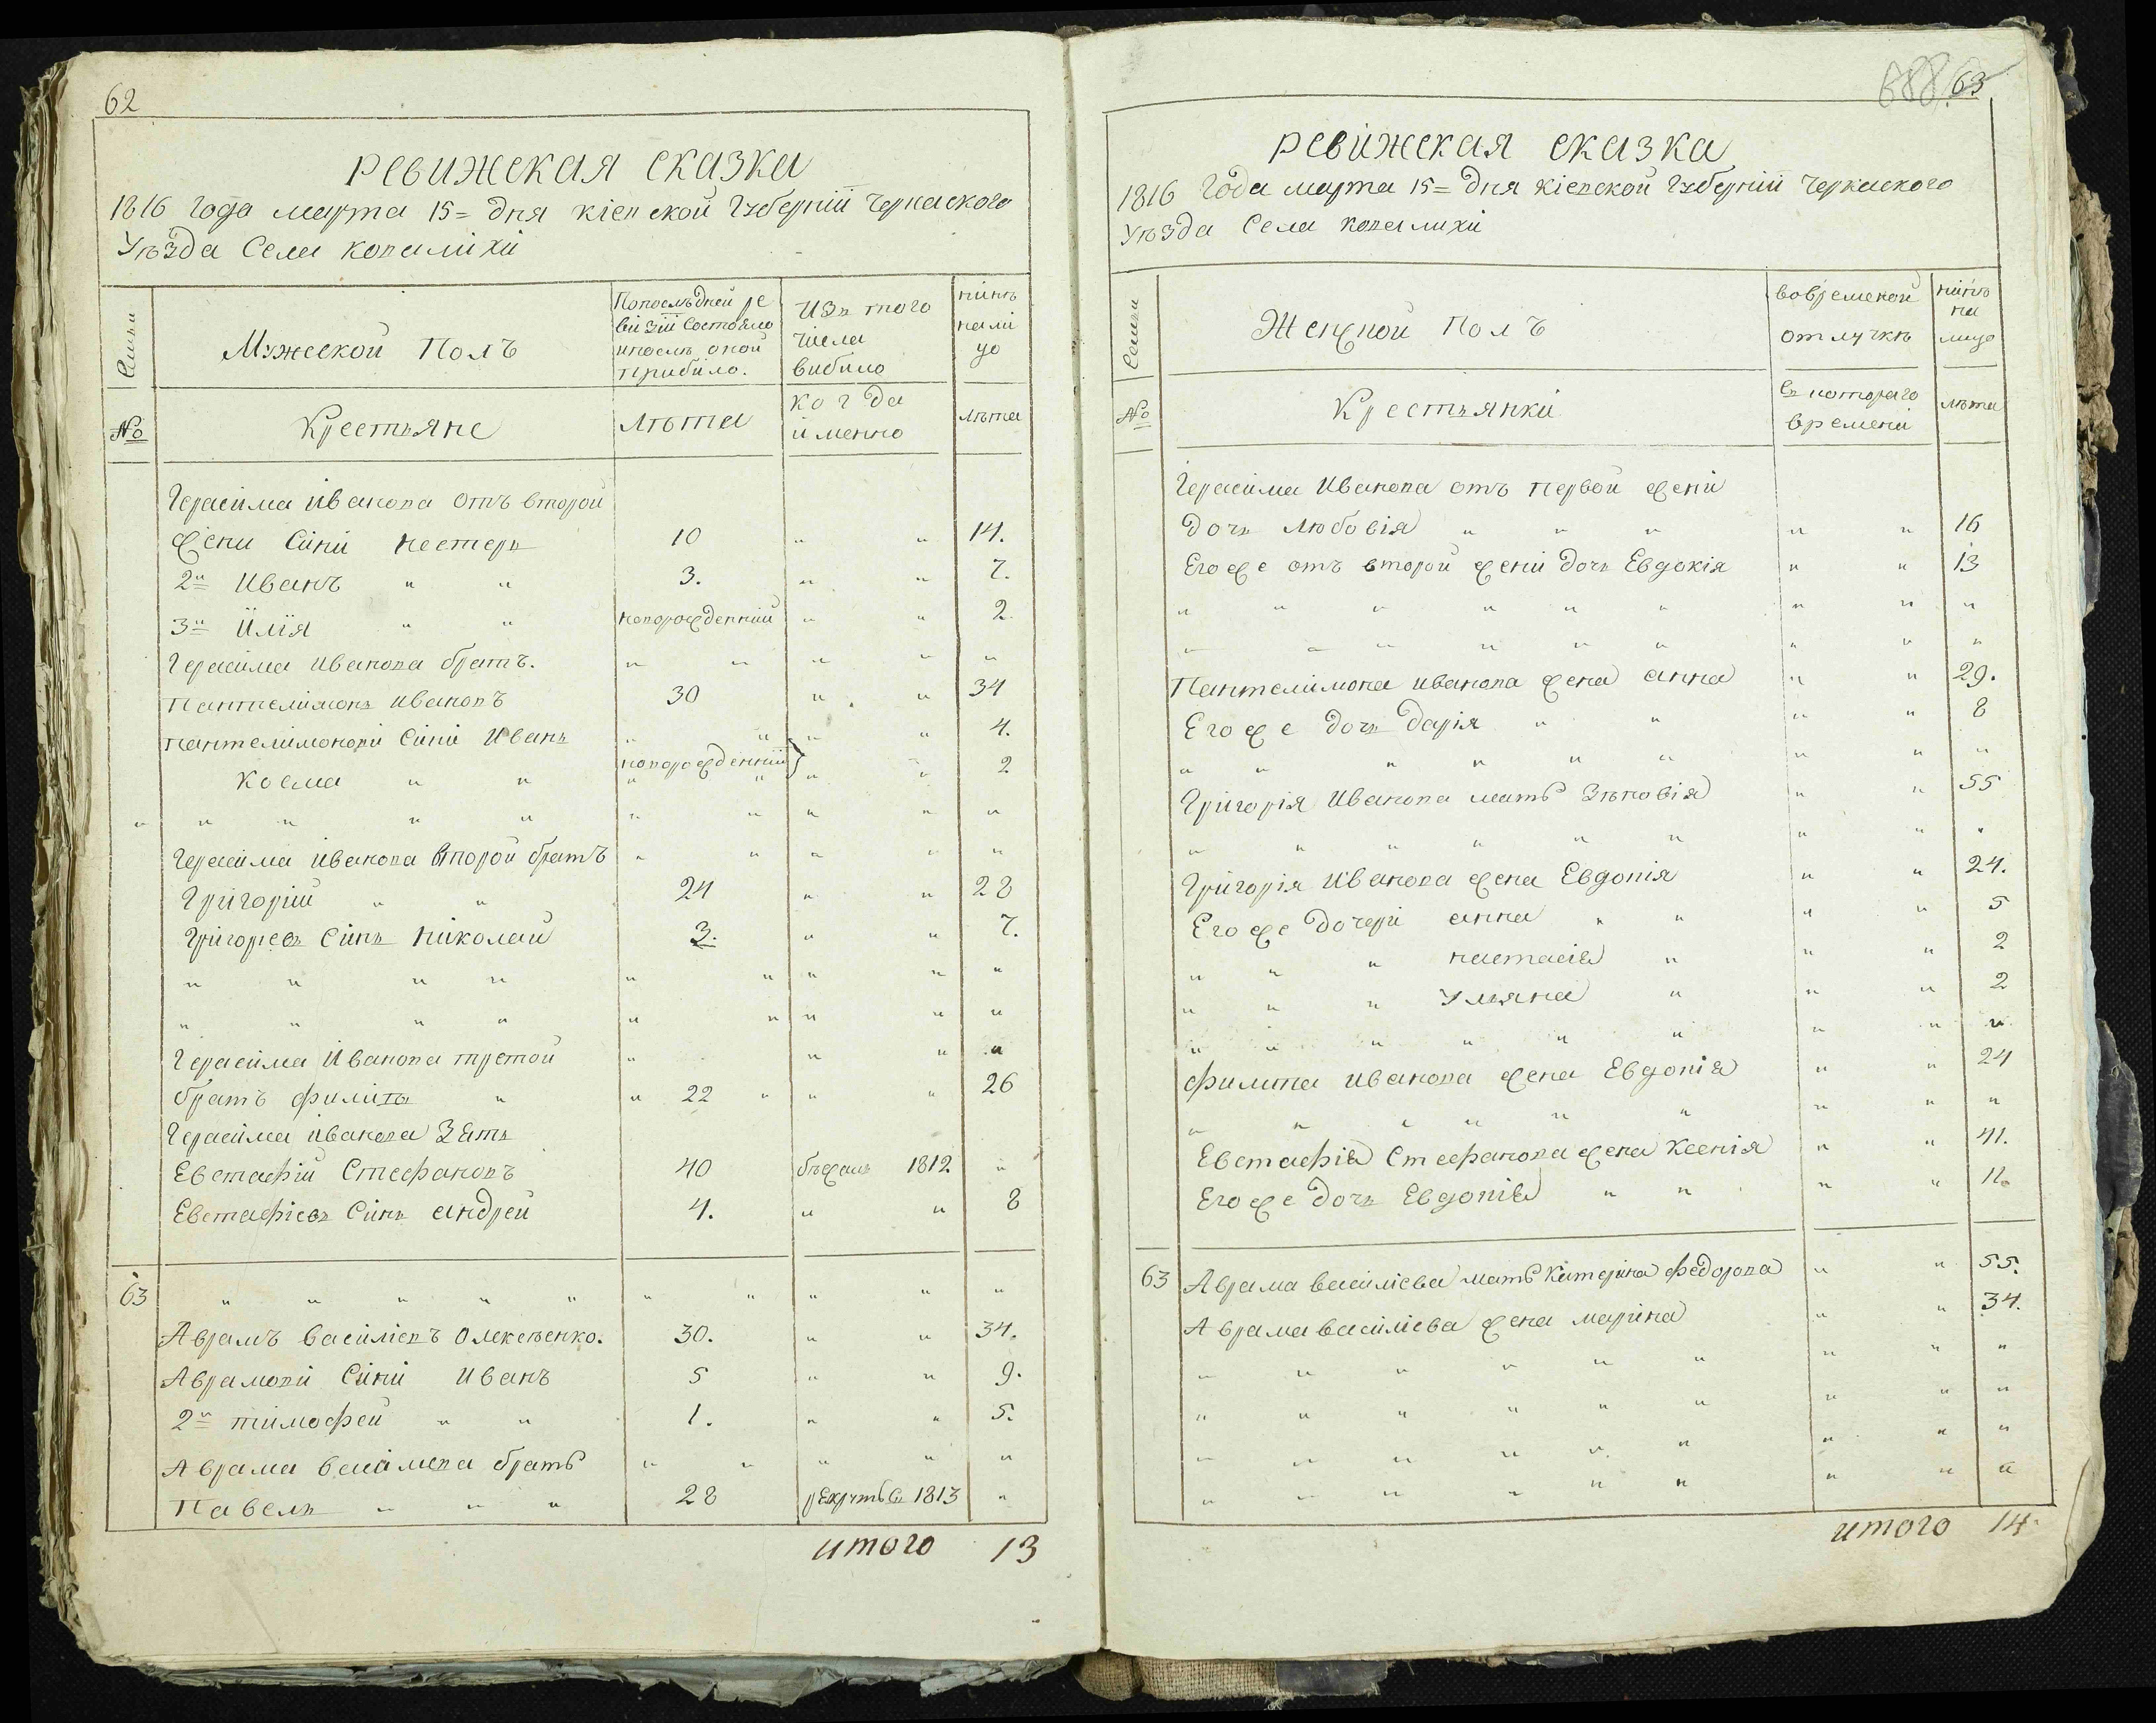 62
ревижская сказка
1816 года марта 15= дня кіевской губерніи черкаского
Уѣзда Села ковалихи
Семьи
Мужеской Полъ
По послѣдней ре
визіи состояло
и послѣ оной
прибило.
изъ того
числа
вибило
нинѣ
на ли
цо
№
Крестьяне
лѣта
когда
именно
лѣта
Герасима иванова отъ второй
жени сини нестеръ 10 " " 14.
2й иванъ " " 3. " " 7.
3й илія " " новорожденній " " 2.
Герасима иванова братъ. " " " " "
Пантелимонъ ивановъ 30 " " 34
пантелимонови сини иванъ " " " " 4.
новорожденніи}
косма " " " " " " 2
" " " " " " " " " "
Герасима иванова второй братъ " " " " "
Григорій " " 24 " " 28
Григориевъ синъ николай 3. " " 7.
" " " " " " " " "
" " " " " " " " "
Герасима иванова третой " " " "
братъ филипъ " " 22 " " " 26
Герасима иванова зять
Евстафій Стефановъ 40 бѣжалъ 1812 "
Евстафіевъ синъ андрей 4. " " 8
63 " " " " " " " " " "
Аврамъ василіевъ олексѣенко. 30. " " 34.
Аврамови сини иванъ 5 " " 9.
2й тимофей " " 1. " " 5.
Аврама василева братъ " " " " "
Павелъ " " " 28 1813 "
итого 13
688 63
ревижская сказка
1816 года марта 15= дня кіевской губерніи черкаского
Уѣзда Села ковалихи
Семьи
Женской полъ
во временой
отлучкѣ
нинѣ
на
лицо
№
Крестьянки
съ котораго
времени
лѣта
Герасима иванова отъ первой жени
дочь любовія " " " " " 16
Его же отъ второй жени дочь Евдокія " " 13
" " " " " " " " "
" " " " " " " " "
Пантелимона иванова жена анна " " 29.
Его же дочь дарія " " " " 8
" " " " " " " " "
Григорія иванова мать Зѣновія " " 55
" " " " " " " " "
Григорія иванова жена Евдокія " " 24.
Его же дочери анна " " " " 5
" " " настасія " " " 2
" " " Уляна " " " 2
" " " " " " " " "
филипа иванова жена Евдокія " " 24
" " " " " " " " "
Евстафія Стефанова жена Ксенія " " 41.
Его же дочь Евдокія " " " " 11.
63 Аврама василіева мать Катерина федорова " " 55.
Аврама василіева жена марина " " 34.
" " " " " " " " "
" " " " " " " " "
" " " " " " " " "
" " " " " " " " "
итого 14